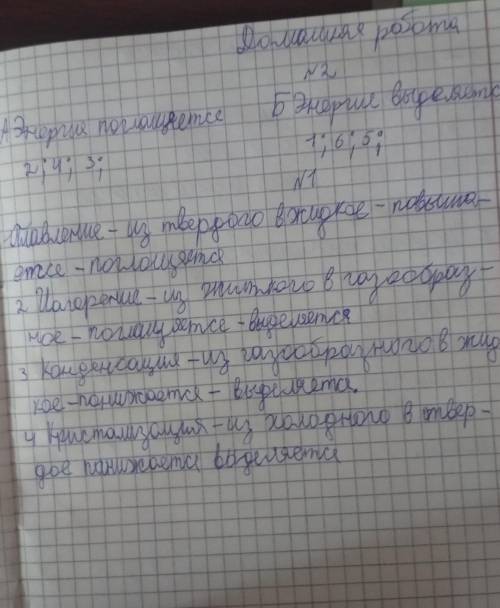 Домашняя работа
N2
А Энергия поглощяется Б Энергия выделяетс
2; 4; 3; 1; 6; 5;
N1
Плавление - из твердого в жидкое - повыша-
ется - поглощяется
2 Испорение - из житкого в газообраз-
ное - поглащяется - выделяется
3 Конденсация - из газообразного в жид
кое - понижается - выделяется.
4 Кристализация - из холодного в твер-
дое панижается выделяется